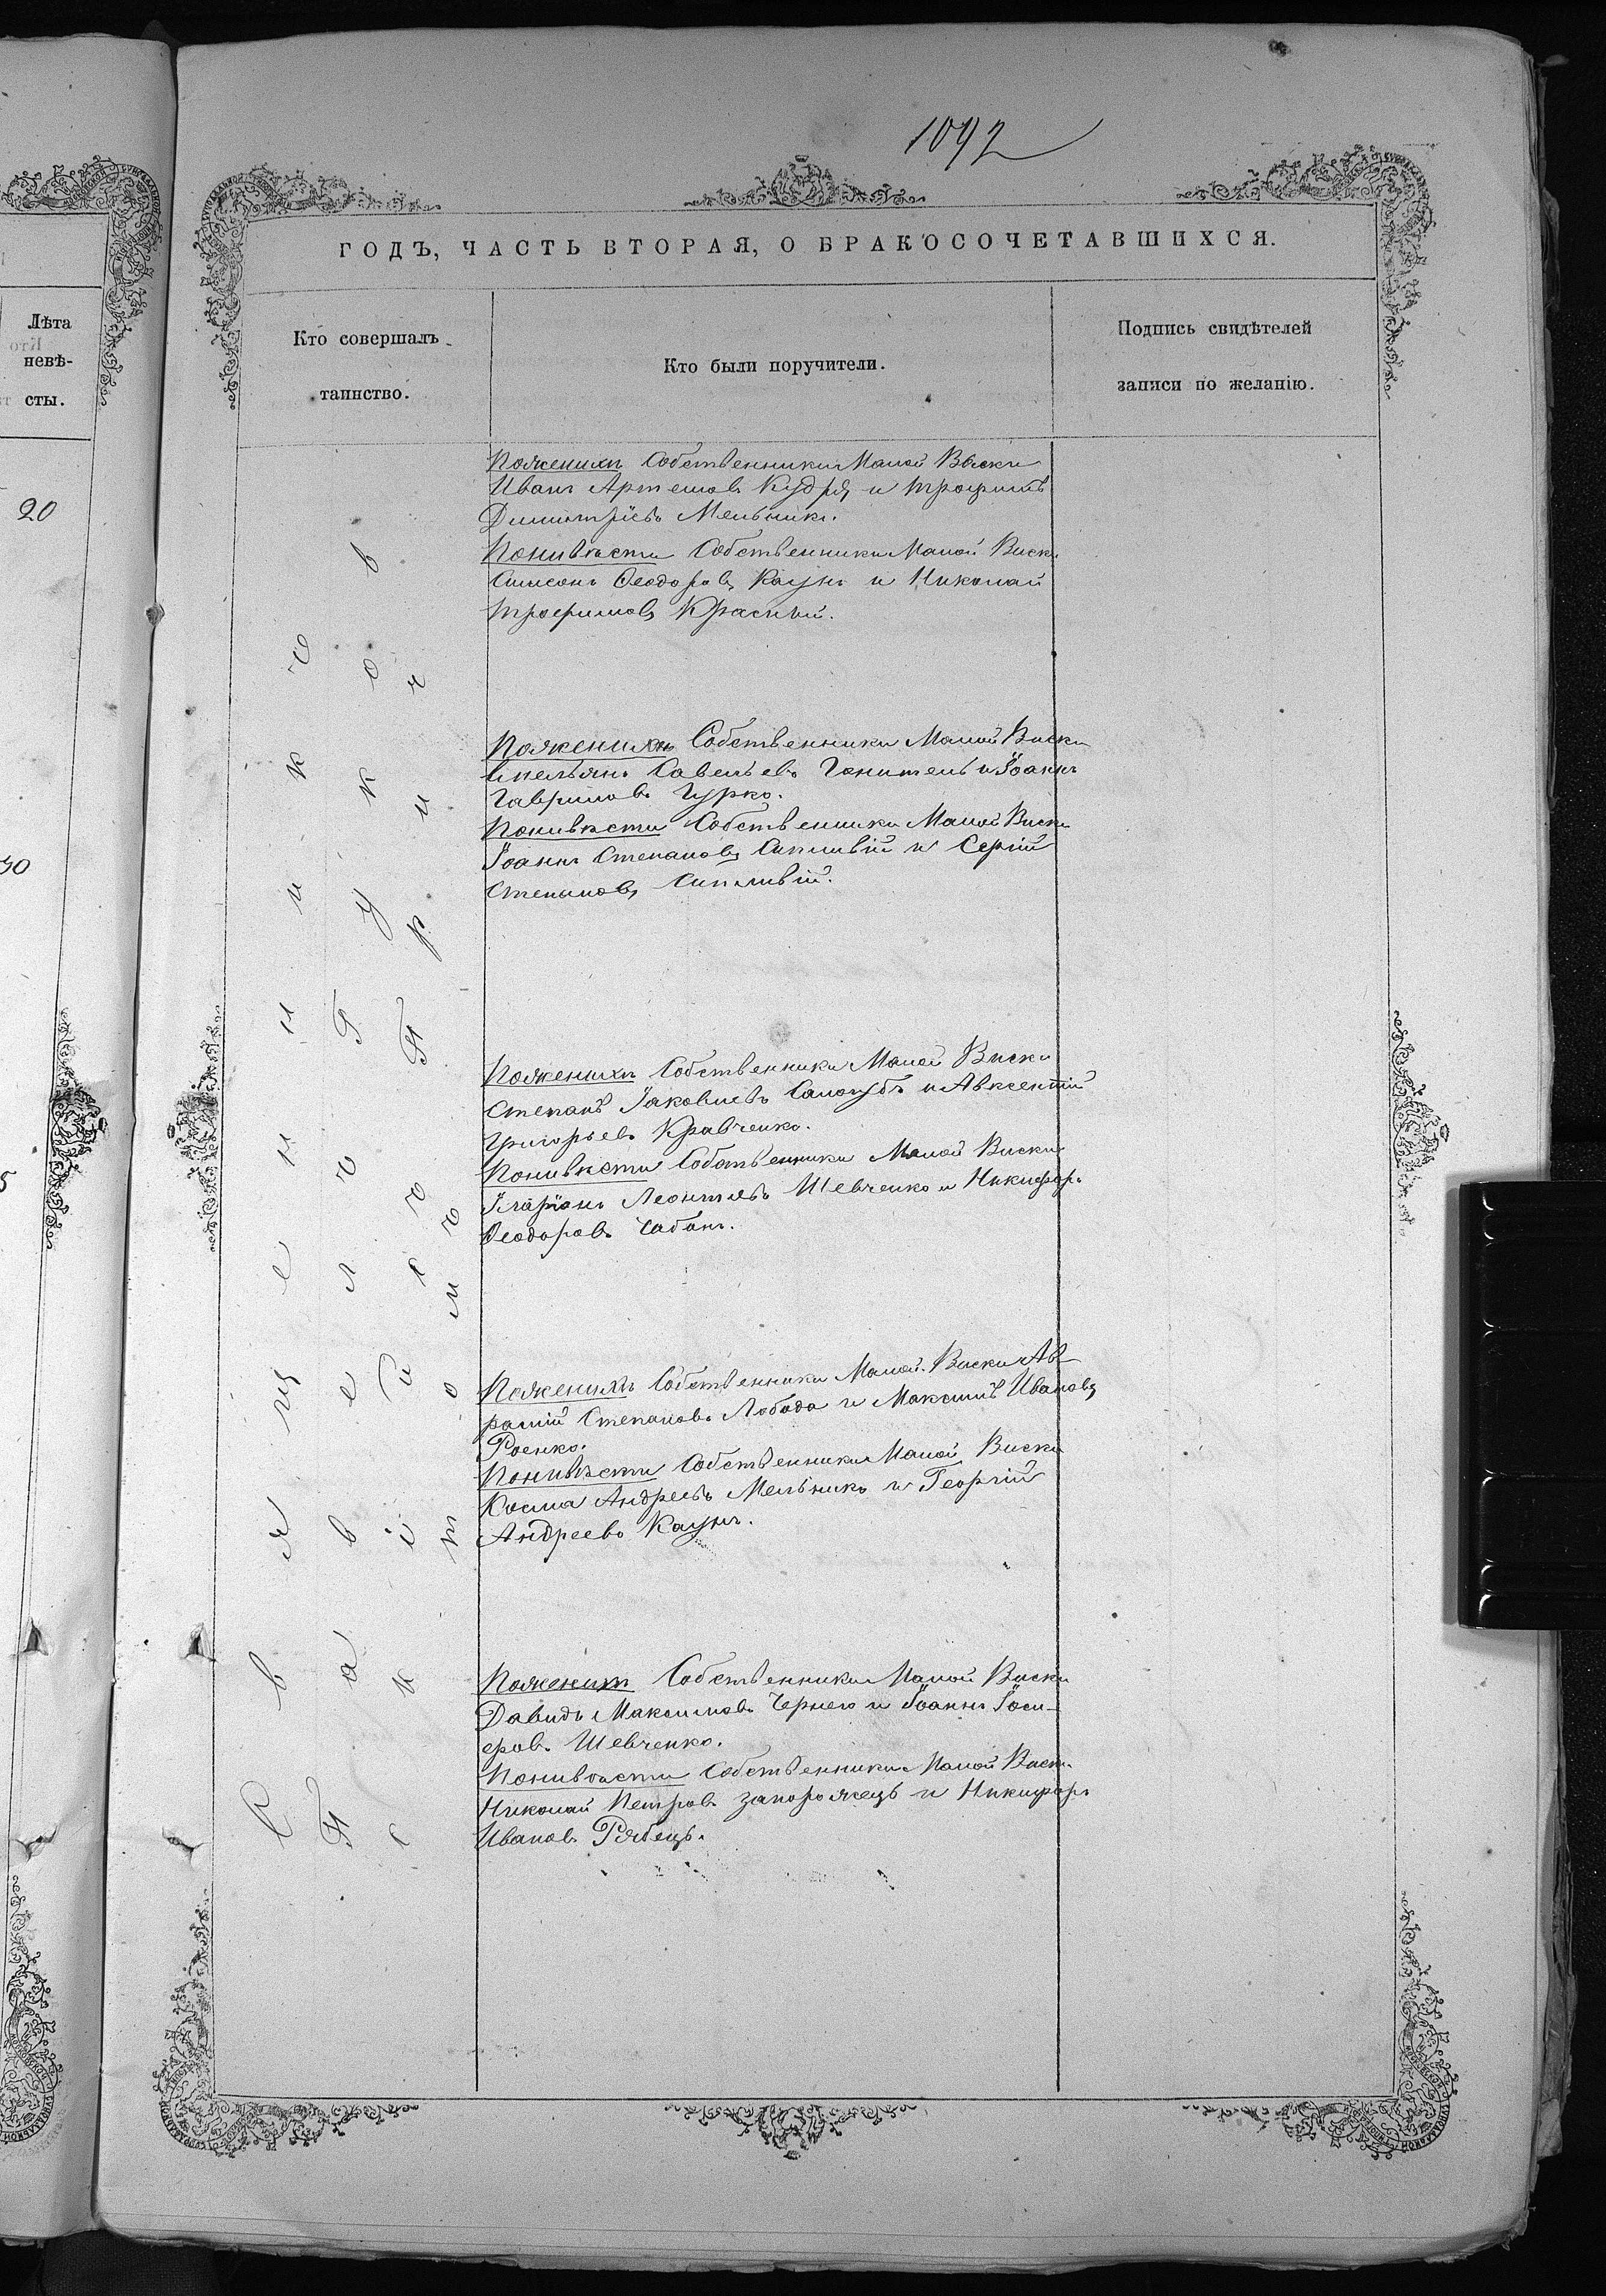 1092
ГОДЪ, ЧАСТЬ ВТОРАЯ, О БРАКОСОЧЕТАВШИХСЯ.
Лѣта
невѣ-
сты.
20
30
5
Кто совершалъ
таинство.
Кто были поручители.
Подпись свидѣтелей
записи по желанію.
Пожених Собственники Малой Виски
Иванъ Артемовъ Кудря и Трофимъ
Димитріевъ Мельникъ.
Поневѣсти Собственники Малой Виски
Симеонъ Ѳеодоровъ Каунъ и Николай
Трофимовъ Красный.
Поженихъ Собственники Малой Виски
Емельянъ Савельевъ Гонитель и Іоаннъ
Гавриловъ Гурко.
Поневѣсти Собственники Малой Виски
Іоаннъ Степановъ Сипливій и Сергій
Степановъ Сипливій.
Поженихи Собственники Малой Виски
Степанъ Іаковлевъ Самогубъ и Авксентій
Григорьевъ Кравченко.
Поневѣсти Собственники Малой Виски
Іларіонъ Леонтьевъ Шевченко и Никифоръ
Ѳеодоровъ Чабанъ.
Поженихъ Собственники Малой Виски Ав-
рамій Степановъ Лобода и Максимъ Ивановъ
Роенко.
Поневѣсти Собственники Малой Виски
Косма Андреевъ Мельникъ и Георгій
Андреевъ Каунъ.
Поженихъ Собственники Малой Виски
Давидъ Максимовъ Чернега и Іоаннъ Іоси-
фовъ Шевченко.
Поневѣсти Собственники Малой Виски
Николай Петровъ Запорожецъ и Никифоръ
Ивановъ Рябецъ.
Священникъ
Павелъ